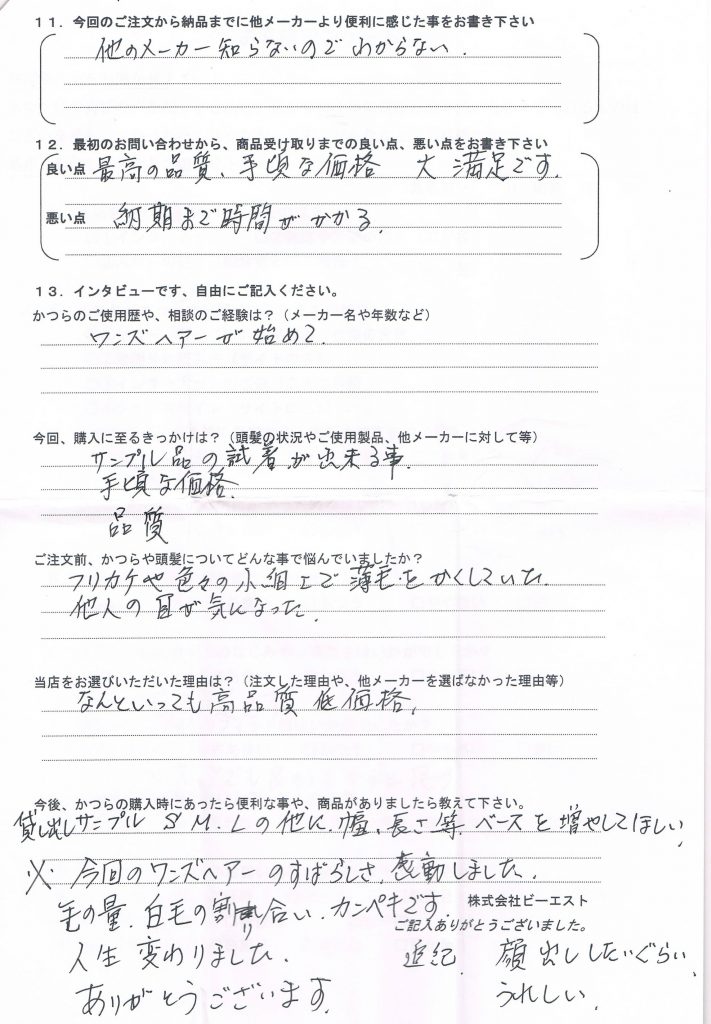 11．今回のご注文から納品までに他メーカーより便利に感じた事をお書き下さい
他のメーカー知らないのでわからない．
12．最初のお問い合わせから、商品受け取りまでの良い点、悪い点をお書き下さい
良い点 最高の品質、手頃な価格 大満足です．
悪い点 納期まで時間がかかる．
13．インタビューです、自由にご記入ください。
かつらのご使用歴や、相談のご経験は？（メーカー名や年数など）
ワンズヘアーが始めて．
今回、購入に至るきっかけは？（頭髪の状況やご使用製品、他メーカーに対して等）
サンプル品の試着が出来る事．
手頃な価格．
品質
ご注文前、かつらや頭髪についてどんな事で悩んでいましたか？
フリカケや色々の小細工で薄毛をかくしていた．
他人の目が気になった．
当店をお選びいただいた理由は？（注文した理由や、他メーカーを選ばなかった理由等）
なんといっても高品質低価格．
今後、かつらの購入時にあったら便利な事や、商品がありましたら教えて下さい。
貸し出しサンプル S M．Lの他に、幅、長さ等ベースを増やしてほしい、
※ 今回のワンズヘアーのすばらしさ、感動しました．
毛の量．白毛の割り合い、カンペキです． 株式会社ビーエスト
ご記入ありがとうございました。
人生変わりました． 追記． 顔出ししたいぐらい、
ありがとうございます． うれしい．